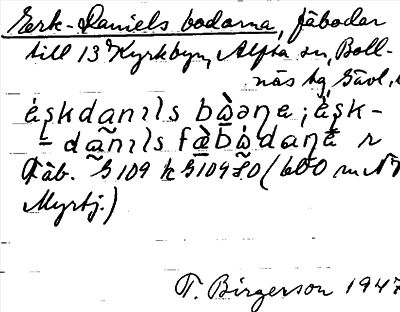 Eerk-Daniels bodarna, fäbodar
till 13 Kyrkbyn, Alfta sn, Boll-
näs tg, Gävl.
ḁ́şkdanıls bɷ̀əna; ḁ́şk-
- danıls fæ̀bɷ̀daŋa r
Fäb. G109 k G109 SO (600 m N
Myrtj.)
T. Birgerson 1947